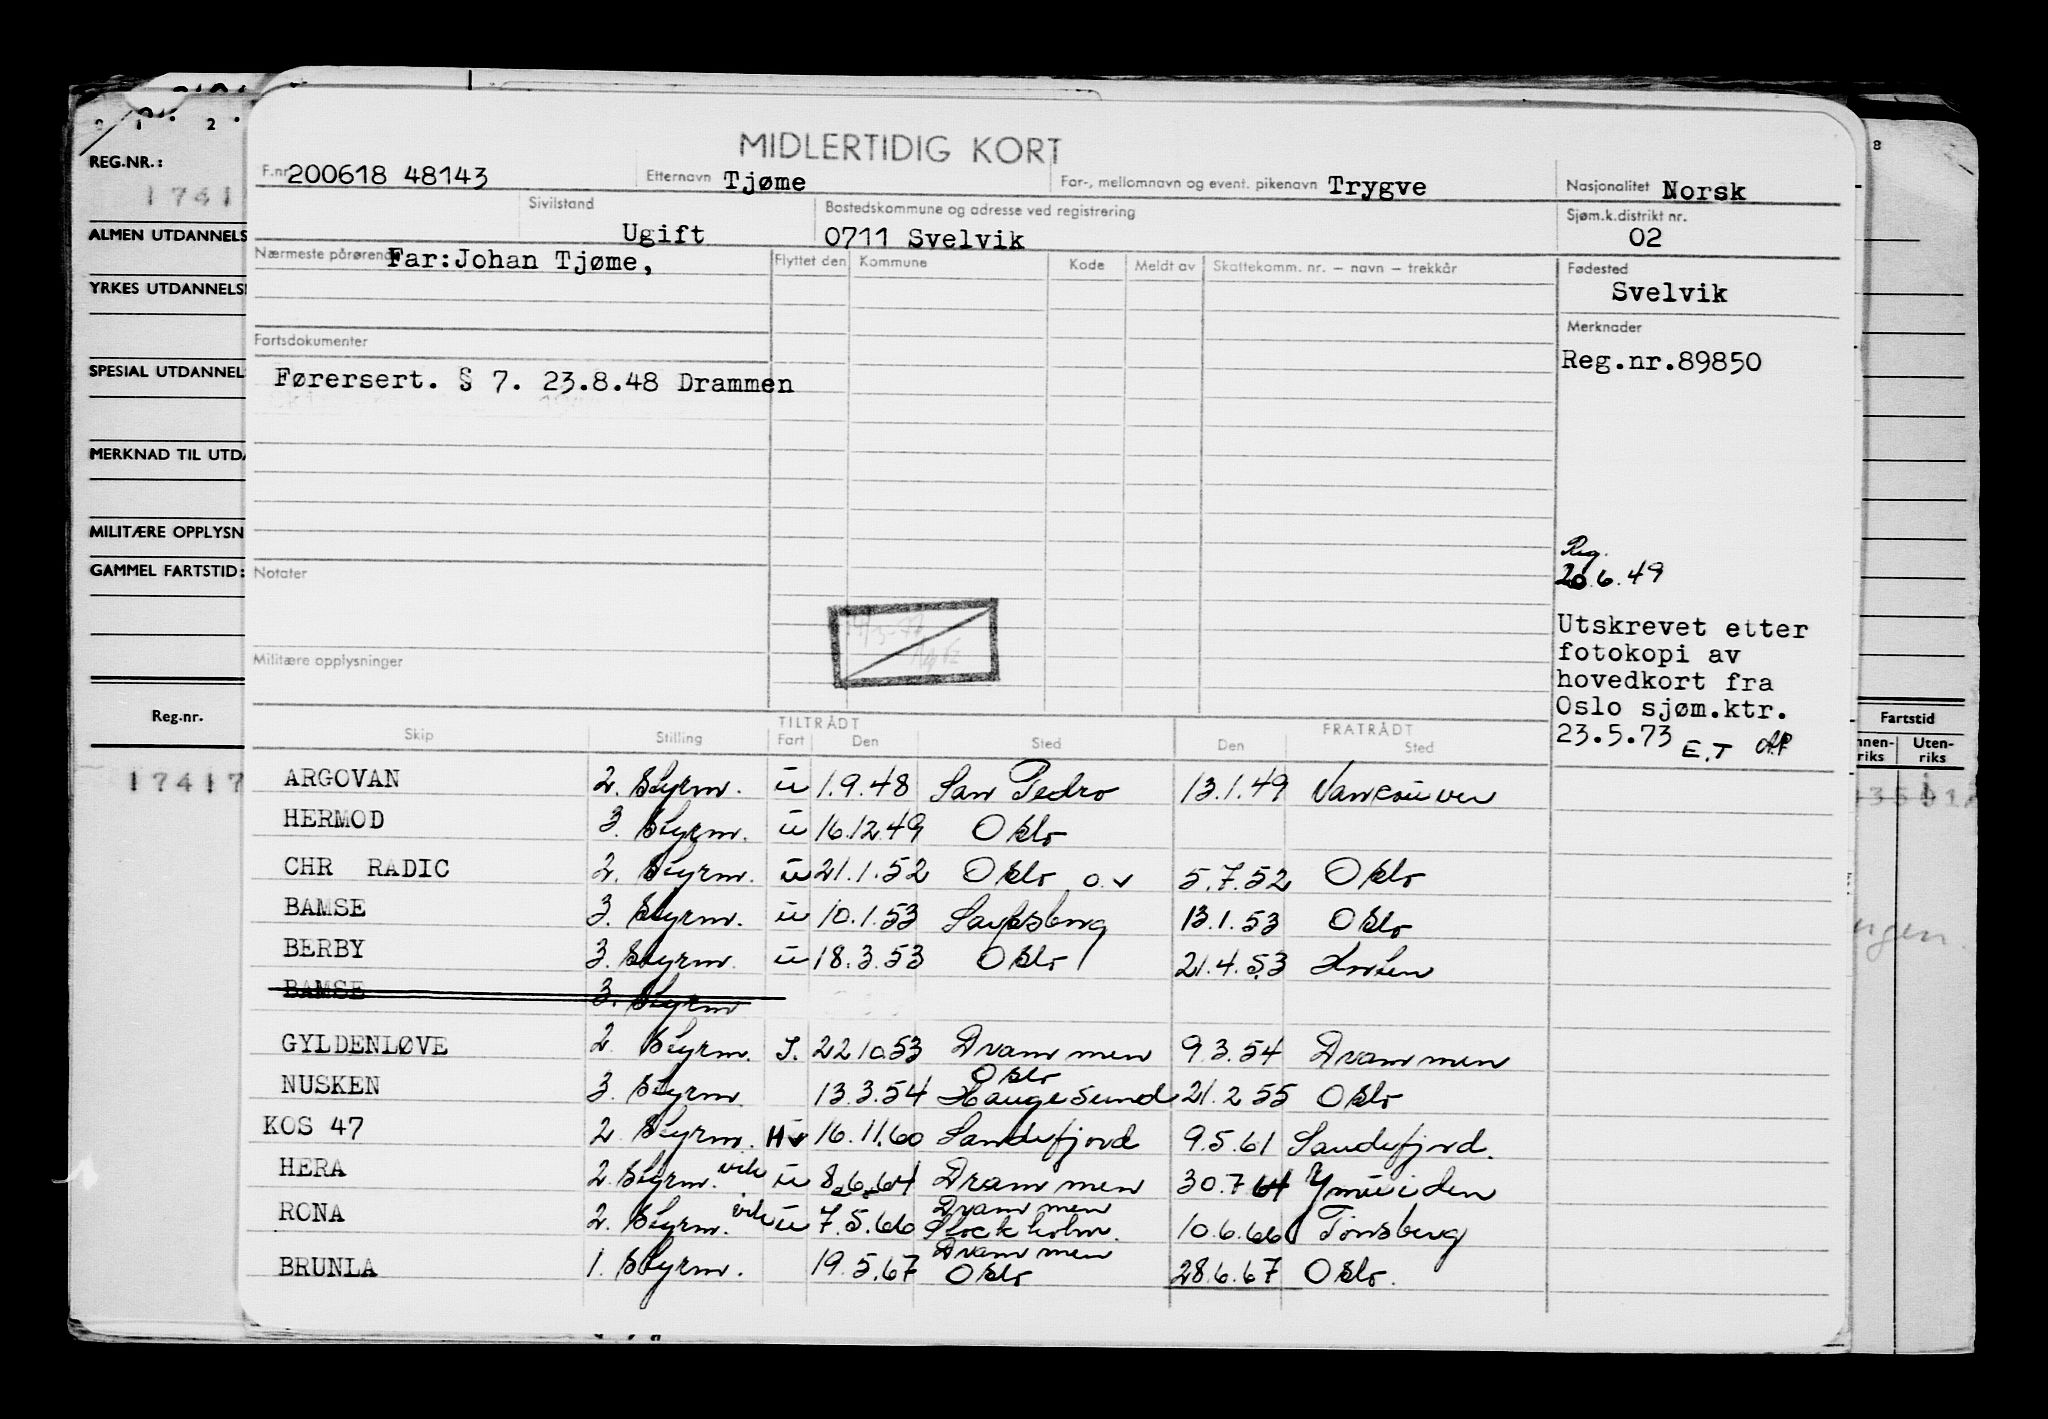 MIDLERTIDIG KORT
F.nr. 200618 48143 Etternavn Tjøme For-, mellomnavn og event. pikenavn Trygve Nasjonalitet Norsk
Sivilstand Ugift Bostedskommune og adresse ved registrering 0711 Svelvik Sjøm.k.distrikt nr. 02
Nærmeste pårørende Far:Johan Tjøme, Flyttet den Kommune Kode Meldt av Skattekomm. nr. – navn – trekkår Fødested
Svelvik
Merknader
Fartsdokumenter
Reg.nr.89850
Førersert. § 7. 23.8.48 Drammen
Reg.
20.6.49
Notater
Utskrevet etter
fotokopi av
hovedkort fra
Oslo sjøm.ktr.
23.5.73 E.T
Militære opplysninger
Skip Stilling TILTRÅDT Fart Den Sted FRATRÅDT Den Sted
ARGOVAN 2. Styrm. u 1.9.48 San Pedro 13.1.49 Vancouver
HERMOD 3. Styrm. u 16.12.49 Oslo
CHR RADIC 2. Styrm. u 21.1.52 Oslo o.v 5.7.52 Oslo
BAMSE 3. Styrm. u 10.1.53 Sarpsborg 13.1.53 Oslo
BERBY 3. Styrm. u 18.3.53 Oslo 21.4.53
BAMSE 3. Styrm
GYLDENLØVE 2 Styrm. I. 22.10.53 Drammen 9.3.54 Drammen
NUSKEN 3. Styrm. 13.3.54 Oslo Haugesund 21.2.55 Oslo
KOS 47 2 Styrm. Hv 16.11.60 Sandefjord 9.5.61 Sandefjord.
HERA 2. Styrm. vik u 8.6.64 Drammen 30.7.64 Ymuiden
RONA 2. Styrm. vik u 7.5.66 Drammen Stockholm. 10.6.66 Tønsberg
BRUNLA 1. Styrm. 19.5.67 Drammen Oslo 28.6.67 Oslo.
REG.NR.:
ALMEN UTDANNELS
YRKES UTDANNELS
SPESIAL UTDANNEL
MERKNAD TIL UTD
MILITÆRE OPPLYSN
GAMMEL FARTSTID:
Reg.nr.
17417
8
Fartstid
nnen-
riks
Uten-
riks